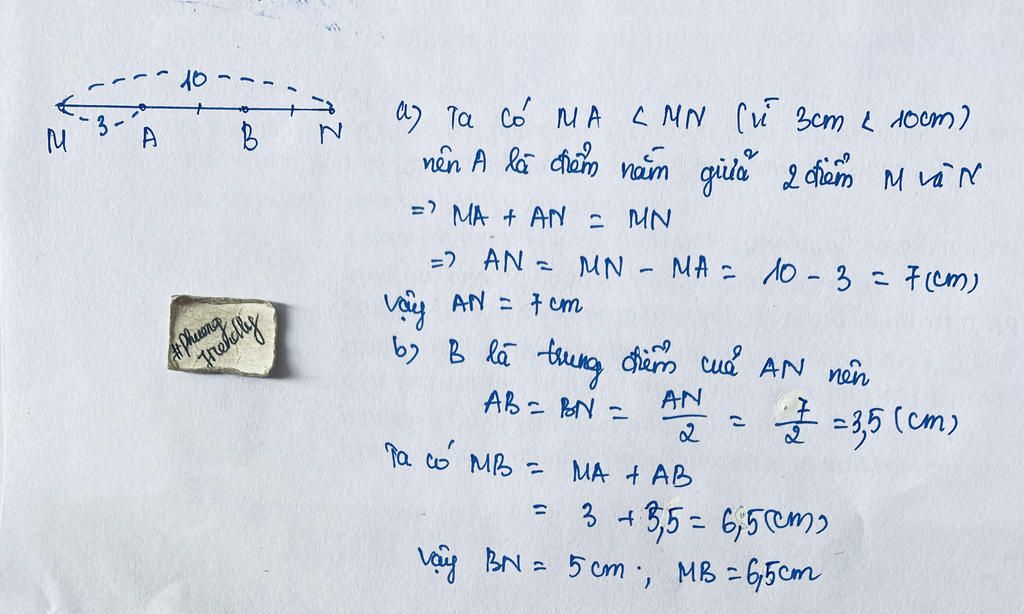 10
3
M A B N
a) Ta có MA < MN (vì 3cm < 10cm)
nên A là điểm nằm giữa 2 điểm M và N
=> MA + AN = MN
=> AN = MN - MA = 10 - 3 = 7 (cm)
Vậy AN = 7 cm
b) B là trung điểm của AN nên
AB = BN = AN/2 = 7/2 = 3,5 (cm)
Ta có MB = MA + AB
= 3 + 3,5 = 6,5 (cm)
Vậy BN = 5 cm ; MB = 6,5 cm
#phuong